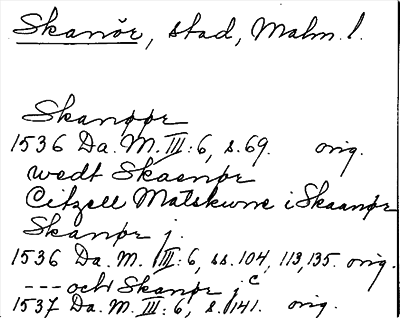 Skanör, stad, Malm. l.
Skanøør
1536 Da. M. III: 6, s. 69. orig.
wedt Skaanør
Citzell Matskunne i Skaanør
Skanør j.
1536 Da. M. III: 6, ss. 104, 113, 135. orig.
--- och Skanør j c
1537 Da. M. III: 6, s. 141. orig.